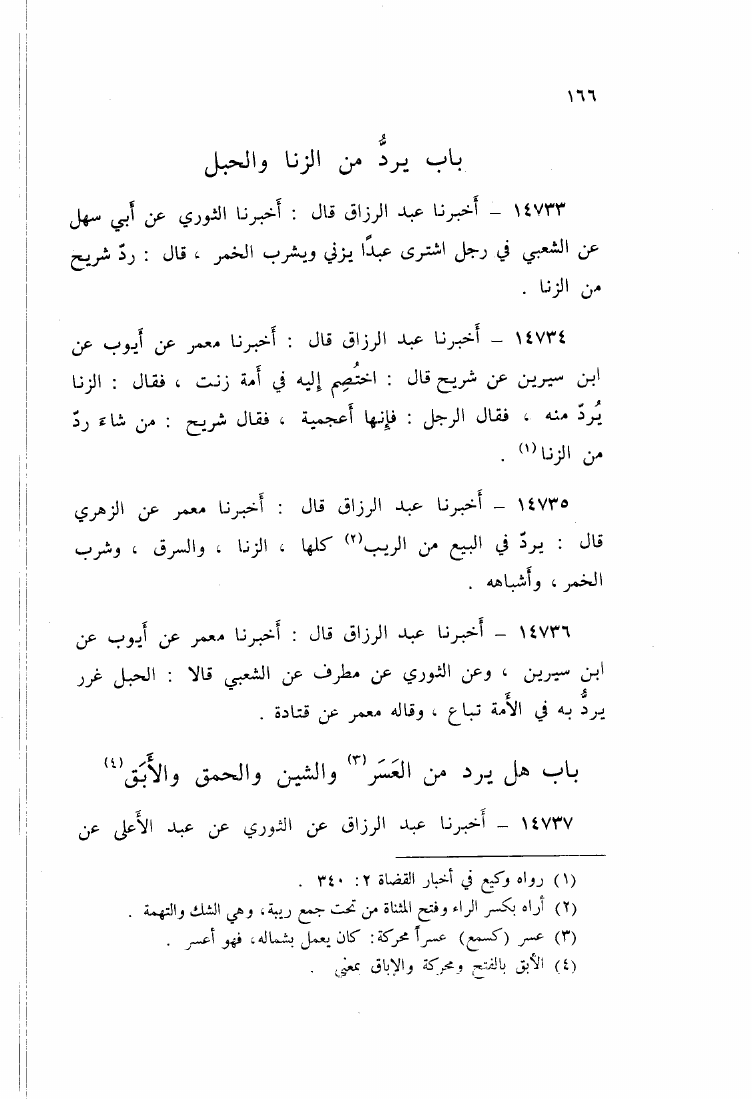 ١٦٦
باب يردُّ من الزنا والحبل
١٤٧٣٣ – أخبرنا عبد الرزاق قال : أخبرنا الثوري عن أبي سهل
عن الشعبي في رجل اشترى عبدًا يزني ويشرب الخمر ، قال : ردّ شريح
من الزنا .
١٤٧٣٤ – أخبرنا عبد الرزاق قال : أخبرنا معمر عن أيوب عن
ابن سيرين عن شريح قال : اختُصِم إليه في أمة زنت ، فقال : الزنا
يُردّ منه ، فقال الرجل : فإنها أعجمية ، فقال شريح : من شاءَ ردّ
من الزنا (١) .
١٤٧٣٥ – أخبرنا عبد الرزاق قال : أخبرنا معمر عن الزهري
قال : يردّ في البيع من الريب (٢) كلها ، الزنا ، والسرق ، وشرب
الخمر ، وأشباهه .
١٤٧٣٦ – أخبرنا عبد الرزاق قال : أخبرنا معمر عن أيوب عن
ابن سيرين ، وعن الثوري عن مطرف عن الشعبي قالا : الحبل غرر
يردُّ به في الأمة تباع ، وقاله معمر عن قتادة .
باب هل يرد من العَسَر (٣) والشين والحمق والأَبَق (٤)
١٤٧٣٧ – أخبرنا عبد الرزاق عن الثوري عن عبد الأعلى عن
(١) رواه وكيع في أخبار القضاة ٢ : ٣٤٠ .
(٢) أراه بكسر الراء وفتح المثناة من تحت جمع ريبة، وهي الشك والتهمة .
(٣) عسر (كسمع) عسراً محركة : كان يعمل بشماله، فهو أعسر .
(٤) الأبق بالفتح ومحركة والإباق بمعنى .